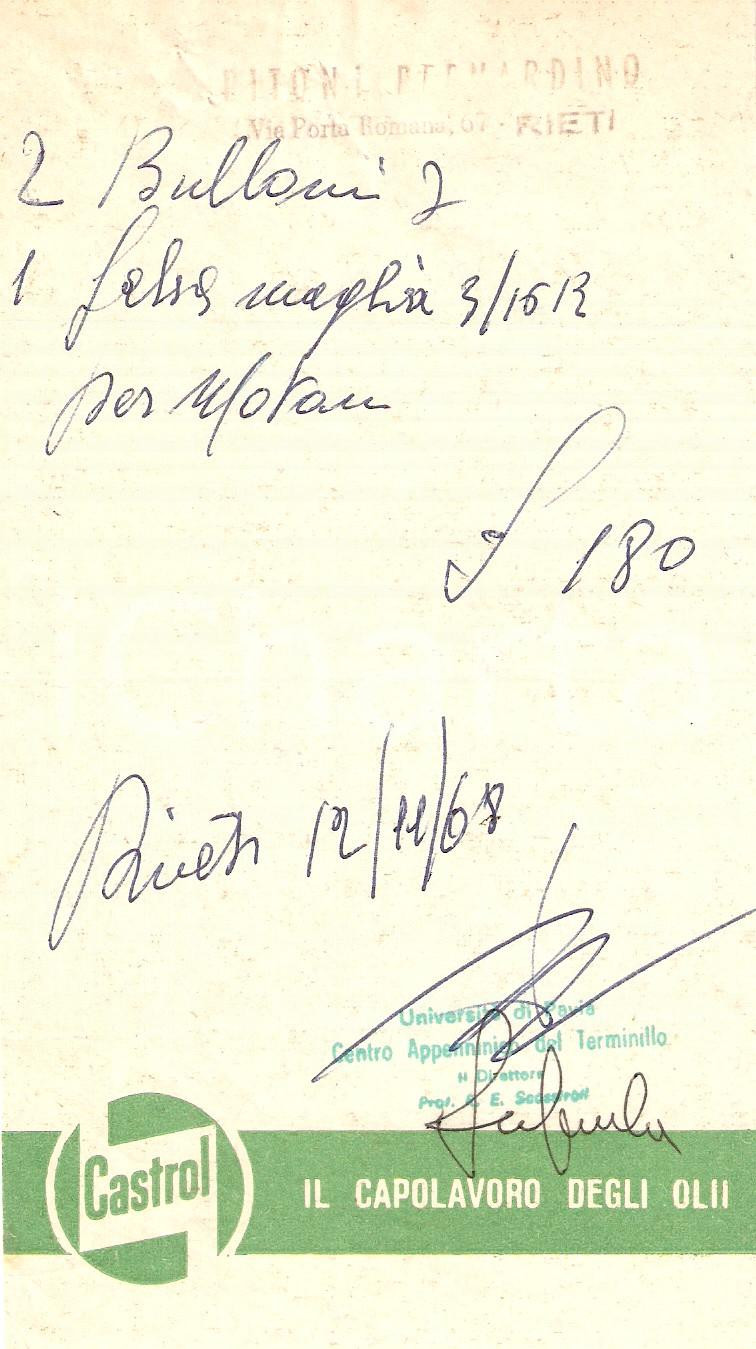 BERNARDINO
Via Porta Romana, 67 - RIETI
2 Bulloni
1 falsa maglia 3/16 R
per Motom
£ 180
iCharta
Rieti 12/11/68
Università di Pavia
Centro Appenninico del Terminillo
Il Direttore
Prof. E.
Castrol
IL CAPOLAVORO DEGLI OLII